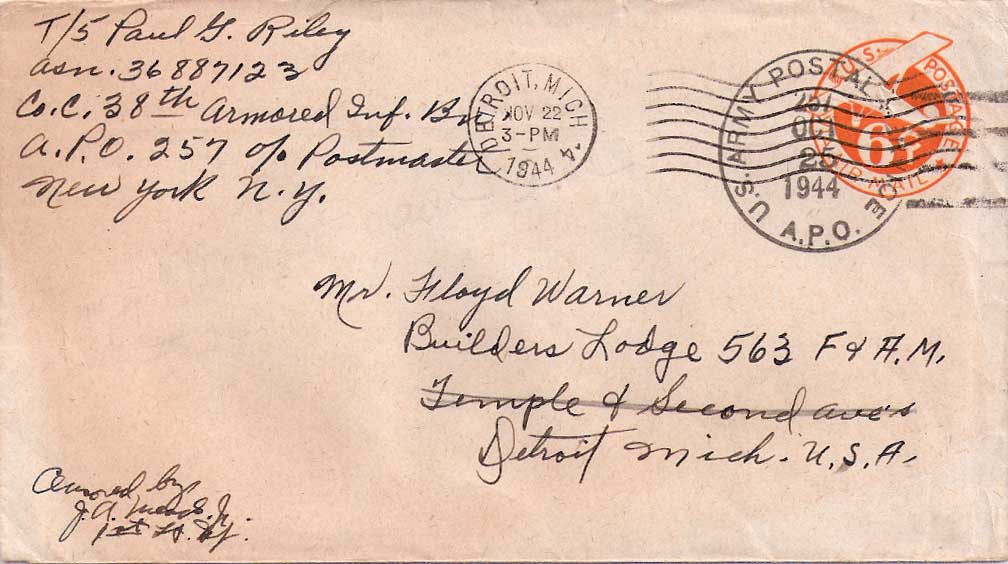 T/5 Paul G. Riley
asn. 36887123
Co. C. 38th Armored Inf. Bn
A.P.O. 257 c/o Postmaster
New York N.Y.
DETROIT, MICH. 4
NOV 22
3-PM
1944
U.S. ARMY POSTAL
A.P.O.
OCT
25
1944
U.S. POSTAGE
6¢
AIR MAIL
Mr. Floyd Warner
Builders Lodge 563 F & A.M.
Temple & Second ave's
Detroit Mich. U.S.A.
Censored by
J.A.
1st Lt. Inf.